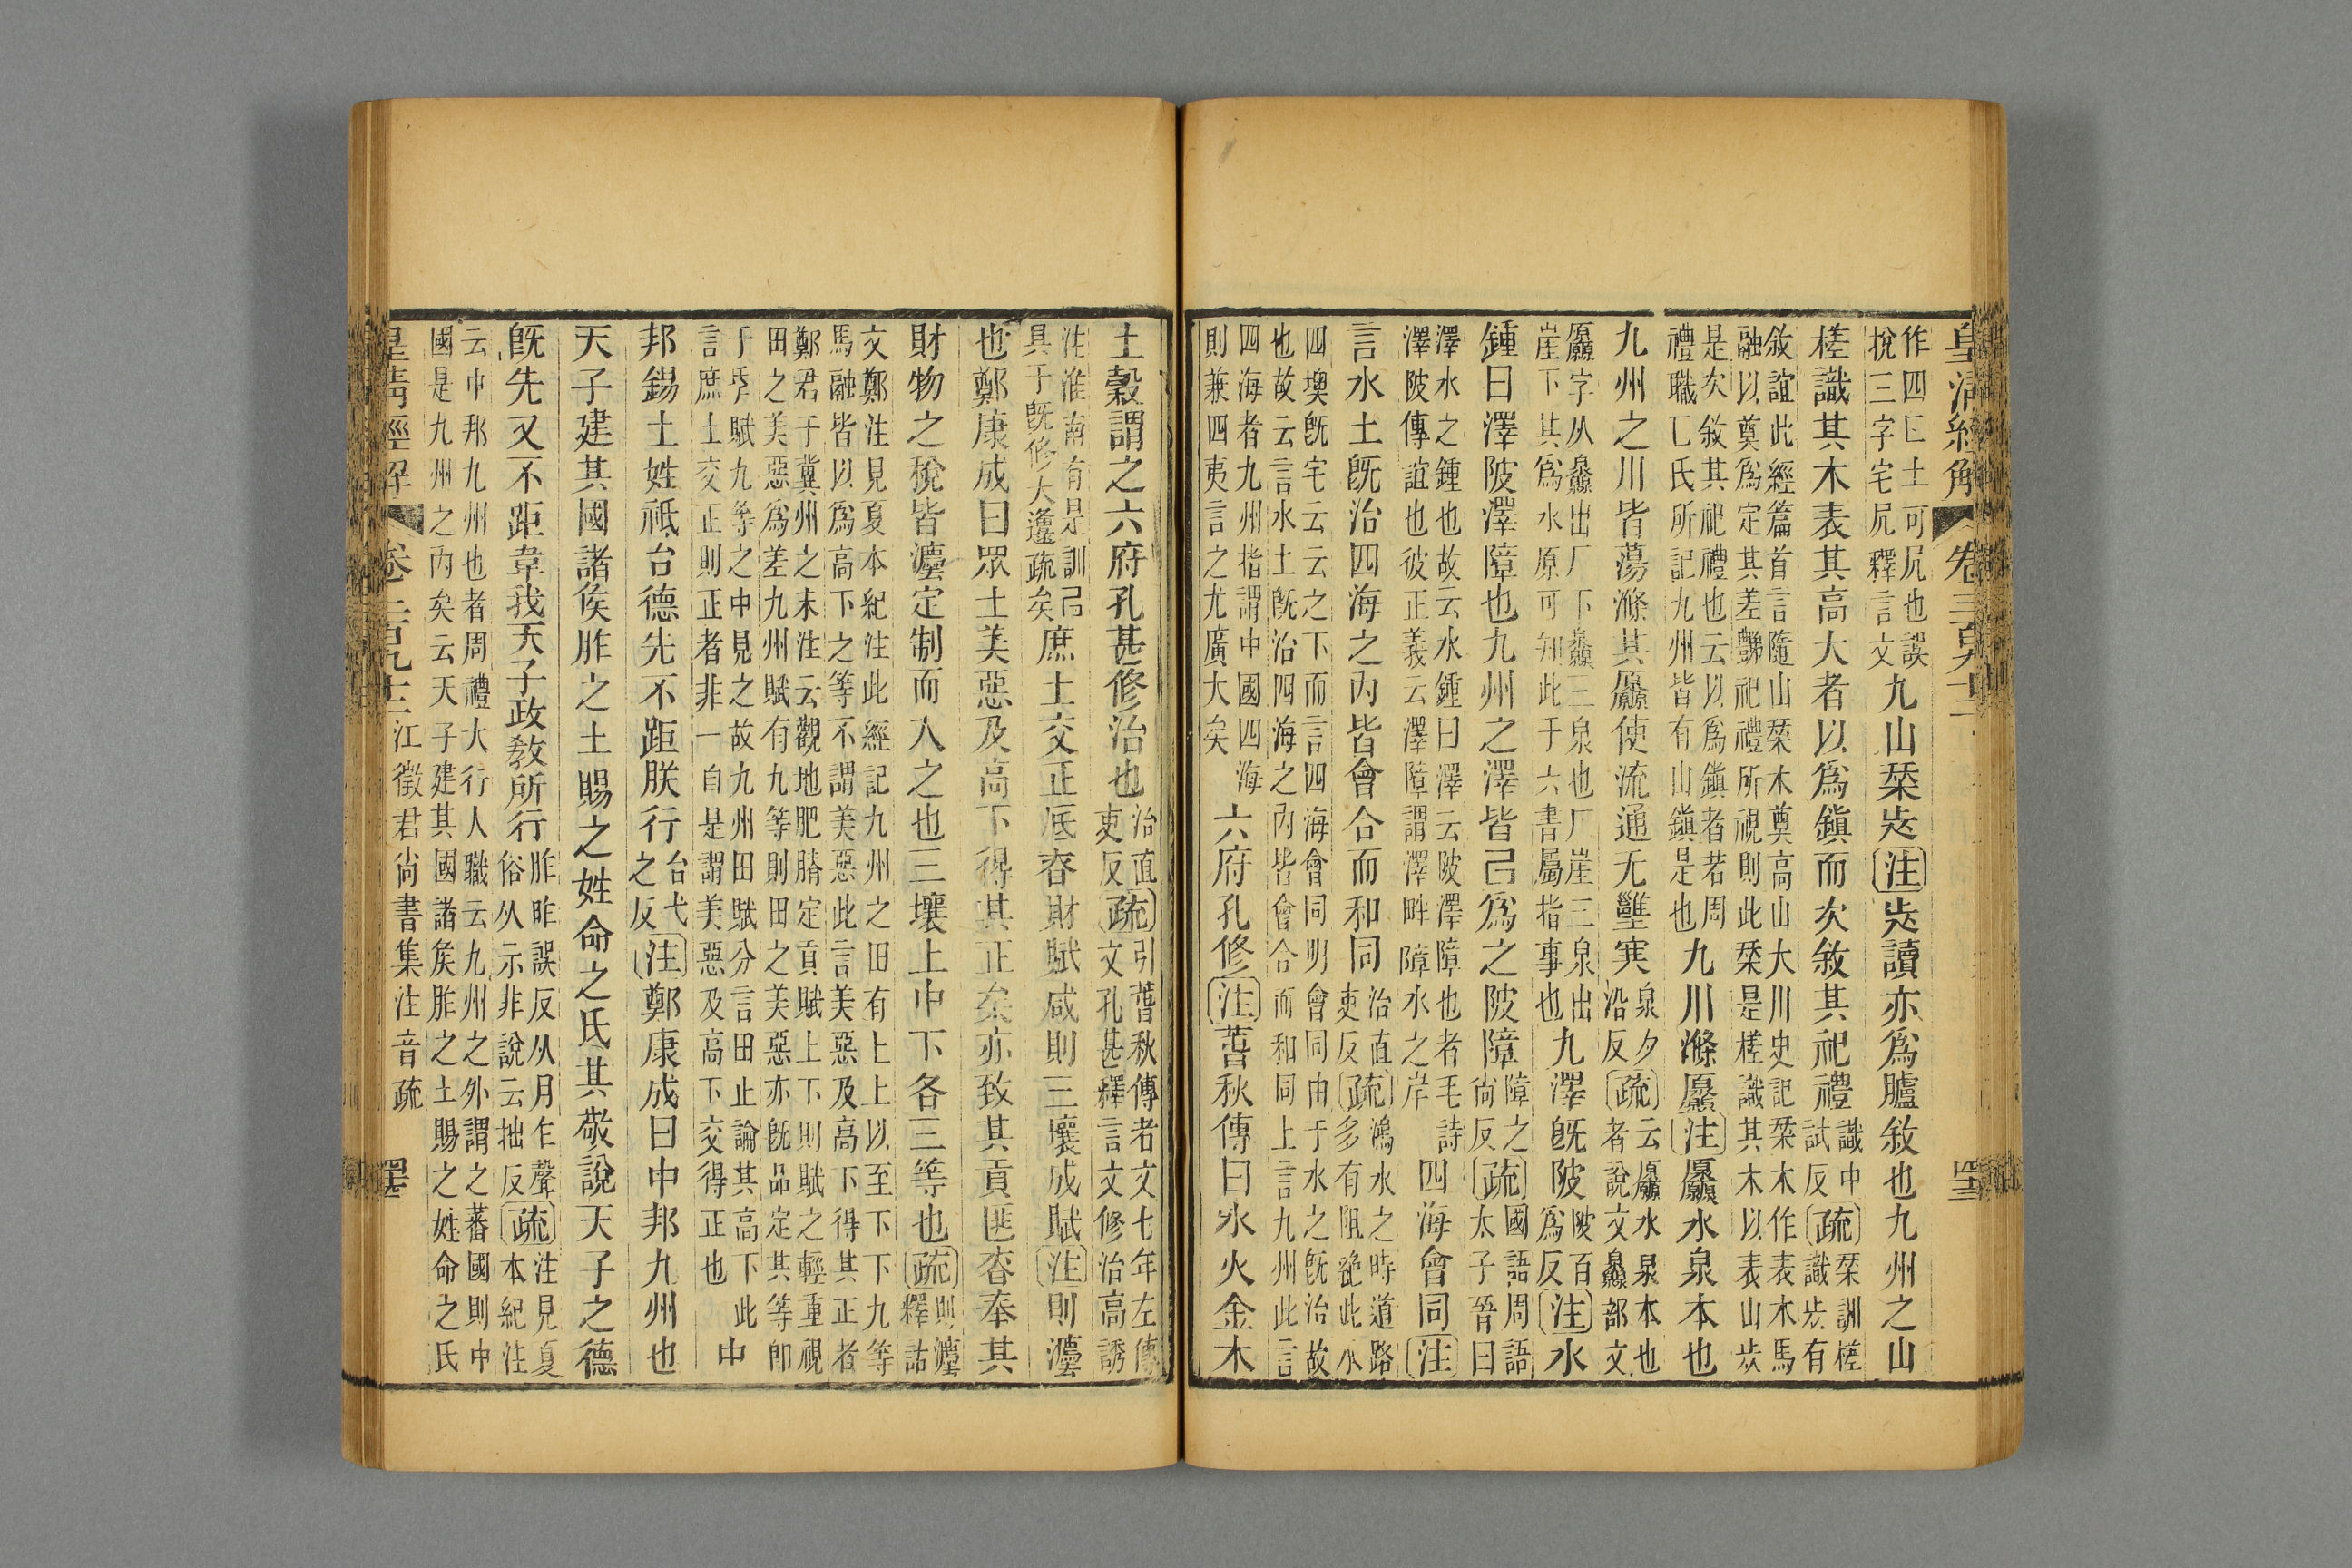 皇清經解 卷三百九十二
作四𠃊土可凥也誤
挩三字宅凥釋言文
九山栞㞢注㞢讀亦爲臚敘也九州之山
槎識其木表其高大者以爲鎭而次敘其祀禮
識中
試反
疏
栞訓槎
識㞢有
敘誼此經篇首言隨山栞木奠高山大川史記栞木作表木馬
融以奠爲定其差豑祀禮所視則此栞是槎識其木以表山㞢
是次敘其祀禮也云以爲鎭者若周
禮職𠤎氏所記九州皆有山鎭是也
九川滌厵注厵水泉本也
九州之川皆蕩滌其厵使流通无壅𡫳
泉夕
沿反
疏
云厵水泉本也
者說文灥部文
厵字从灥出厂下灥三泉也厂崖三泉出
崖下其爲水原可知此于六書屬指事也
九澤旣陂
陂百
爲反
注水
鍾曰澤陂澤障也九州之澤皆已爲之陂障
障之
尙反
疏
國語周語
太子晉曰
澤水之鍾也故云水鍾曰澤云陂澤障也者毛詩
澤陂傳誼也彼正義云澤障謂澤畔障水之岸
四海會同注
言水土旣治四海之內皆會合而和同
治直
吏反
疏
鴻水之時道路
多有阻絕此承
四墺旣宅云云之下而言四海會同明會同由于水之旣治故
也故云言水土旣治四海之內皆會合而和同上言九州此言
四海者九州指謂中國四海
則兼四夷言之尤廣大矣
六府孔修注萅秋傳曰水火金木
土穀謂之六府孔甚修治也
治直
吏反
疏
引萅秋傳者文七年左傳
文孔甚釋言文修治高誘
注淮南有是訓已
具于旣修大邍疏矣
庶土交正厎昚財賦咸則三壤成賦注則灋
也鄭康成曰眾土美惡及高下得其正矣亦致其貢匪昚奉其
財物之稅皆灋定制而入之也三壤上中下各三等也疏
則灋
釋詁
文鄭注見夏本紀注此經記九州之田有上上以至下下九等
馬融皆以爲高下之等不謂美惡此言美惡及高下得其正者
鄭君于冀州之末注云觀地肥腈定貢賦上下則賦之輕重視
田之美惡爲差九州賦有九等則田之美惡亦旣品定其等卽
于𠂹賦九等之中見之故九州田賦分言田止論其高下此
言庶土交正則正者非一自是謂美惡及高下交得正也
中
邦錫土姓祗台德先不距朕行
台弋
之反
注鄭康成曰中邦九州也
天子建其國諸矦胙之土賜之姓命之氏其敬說天子之德
旣先又不距韋我天子政教所行
胙昨誤反从月乍聲
俗从示非說云拙反
疏
注見夏
本紀注
云中邦九州也者周禮大行人職云九州之外謂之蕃國則中
國是九州之內矣云天子建其國諸矦胙之土賜之姓命之氏
皇清經解 卷三百九十二 江徵君尙書集注音疏